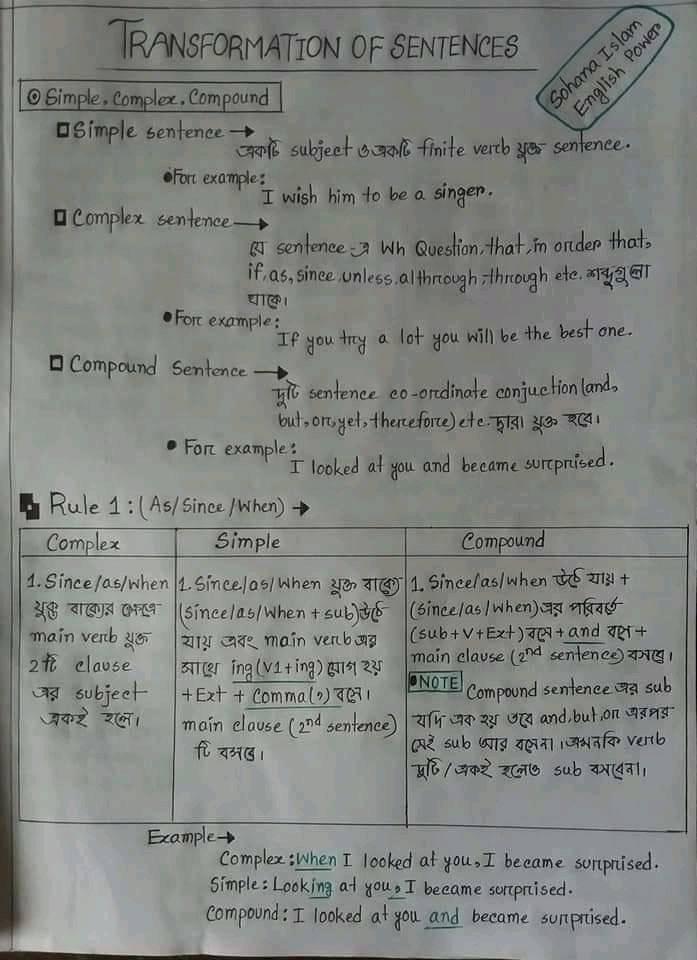 TRANSFORMATION OF SENTENCES
Sohana Islam
English Power
Simple, Complex, Compound
Simple sentence →
একটি subject ও একটি finite verb যুক্ত sentence.
For example:
I wish him to be a singer.
Complex sentence →
যে sentence-এ Wh Question, that, in order that,
if, as, since, unless, althrough, through etc. শব্দগুলো
থাকে।
For example:
If you try a lot you will be the best one.
Compound Sentence →
দুটি sentence co-ordinate conjuction (and,
but, or, yet, therefore) etc. দ্বারা যুক্ত হবে।
For example:
I looked at you and became surprised.
Rule 1: (As/Since/When) →
Complex
Simple
Compound
1. Since/as/when
যুক্ত বাক্যের ক্ষেত্রে
main verb যুক্ত
2টি clause
এর subject
একই হলে।
1. Since/as/when যুক্ত বাক্যে
(since/as/when + sub) উঠে
যায় এবং main verb এর
সাথে ing (V1+ing) যোগ হয়
+Ext + Comma(,) বসে।
main clause (2nd sentence)
টি বসবে।
1. Since/as/when উঠে যায় +
(since/as/when) এর পরিবর্তে
(sub+V+Ext) বসে + and বসে +
main clause (2nd sentence) বসবে।
NOTE Compound sentence এর sub
যদি এক হয় তবে and, but, or এরপর
সেই sub আর বসেনা। এমনকি verb
দুটি/একই হলেও sub বসবেনা।
Example →
Complex: When I looked at you, I became surprised.
Simple: Looking at you, I became surprised.
Compound: I looked at you and became surprised.